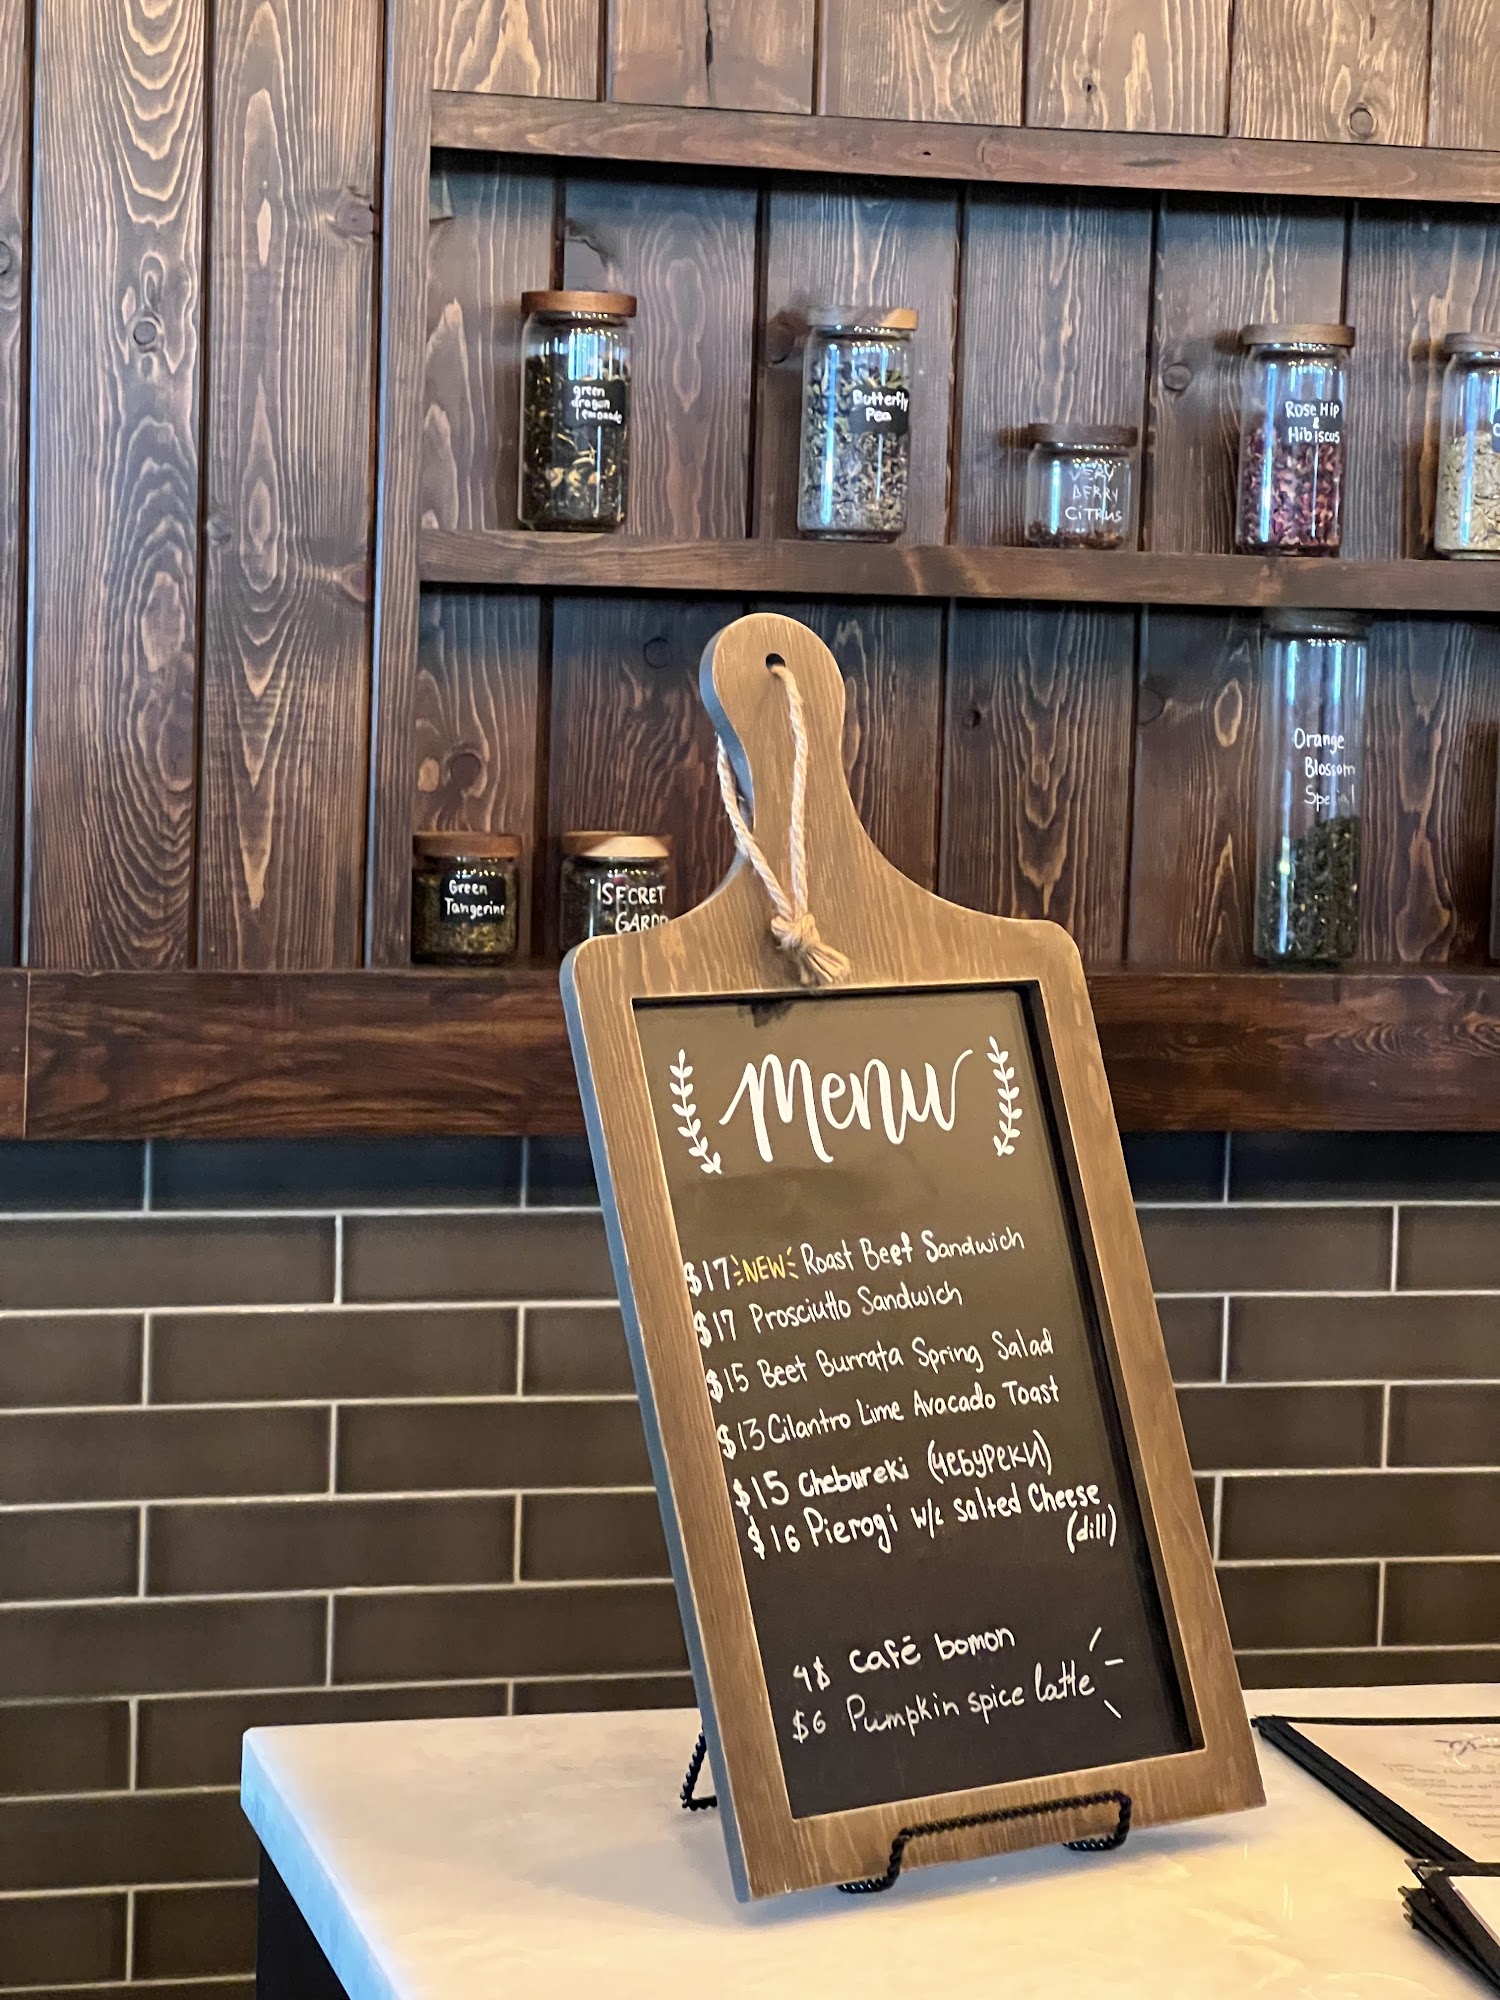 green
dragon
lemonade
Butterfly
Pea
VERY
BERRY
CITRUS
Rose Hip
&
Hibiscus
Orange
Blossom
Special
Green
Tangerine
SECRET
GARD
Menu
$17 NEW Roast Beef Sandwich
$17 Prosciutto Sandwich
$15 Beet Burrata Spring Salad
$13 Cilantro Lime Avocado Toast
$15 Chebureki (чебуреки)
$16 Pierogi w/c salted Cheese
(dill)
4$ café bomon
$6 Pumpkin spice latte